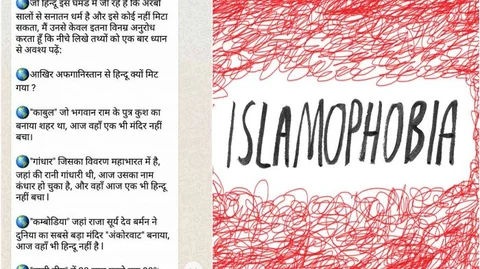 जो हिन्दू इस घमंड में जी रहे है कि अरबों
सालों से सनातन धर्म है और इसे कोई नहीं मिटा
सकता, मैं उनसे केवल इतना विनम्र अनुरोध
करता हूँ कि नीचे लिखे तथ्यों को एक बार ध्यान
से अवश्य पढ़ें:
आखिर अफगानिस्तान से हिन्दू क्यों मिट
गया ?
"काबुल" जो भगवान राम के पुत्र कुश का
बनाया शहर था, आज वहाँ एक भी मंदिर नहीं
बचा।
"गांधार" जिसका विवरण महाभारत में है,
जहां की रानी गांधारी थी, आज उसका नाम
कंधार हो चुका है, और वहाँ आज एक भी हिन्दू
नहीं बचा l
"कम्बोडिया" जहां राजा सूर्य देव बर्मन ने
दुनिया का सबसे बड़ा मंदिर "अंकोरवाट" बनाया,
आज वहाँ भी हिन्दू नहीं है l
ISLAMOPHOBIA